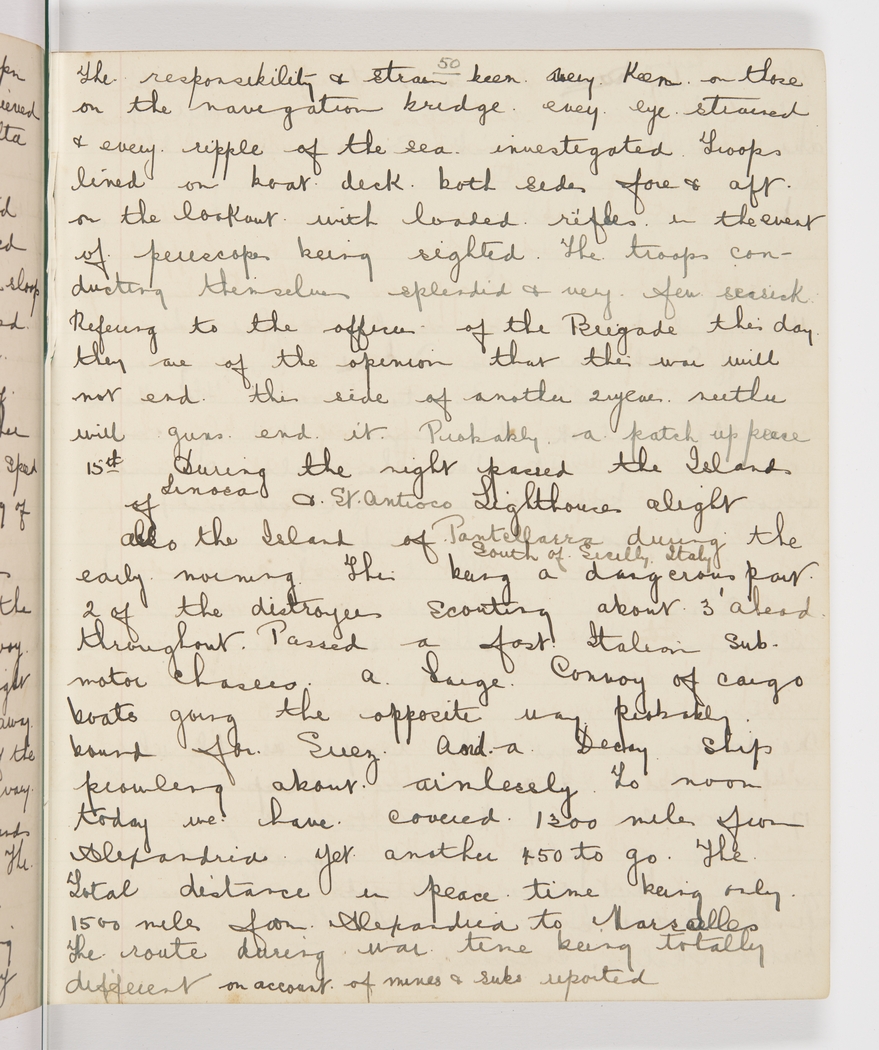 50
The responsibility & strain been very keen on those
on the navigation bridge. every eye strained
& every ripple of the sea investigated. Troops
lined on boat deck both sides fore & aft.
on the lookout with loaded rifles in the event
of periscopes being sighted. The troops con-
ducting themselves splendid & very few seasick.
Refering to the officers of the Brigade this day.
they are of the opinion that this war will
not end this side of another 2 years. neither
will guns end it. Probably a patch up peace
15th During the night passed the Islands
of Linoca & St. Antioco Lighthouses alight
also the Island of Pantellarra during the
South of Sicilly, Italy
early morning. This being a dangerous part.
2 of the distroyers scouting about 3' ahead
throughout. Passed a fast Italian Sub-
motor Chasers. a Large Convoy of cargo
boats going the opposite way probably
bound for Suez. And a Decoy Ship
prowling about aimlessly. To noon
today we have covered 1300 miles from
Alexandria. yet another 450 to go. The
Total distance in peace time being only
1500 miles from Alexandria to Marsailles
The route during war time being totally
different on account of mines & subs reported